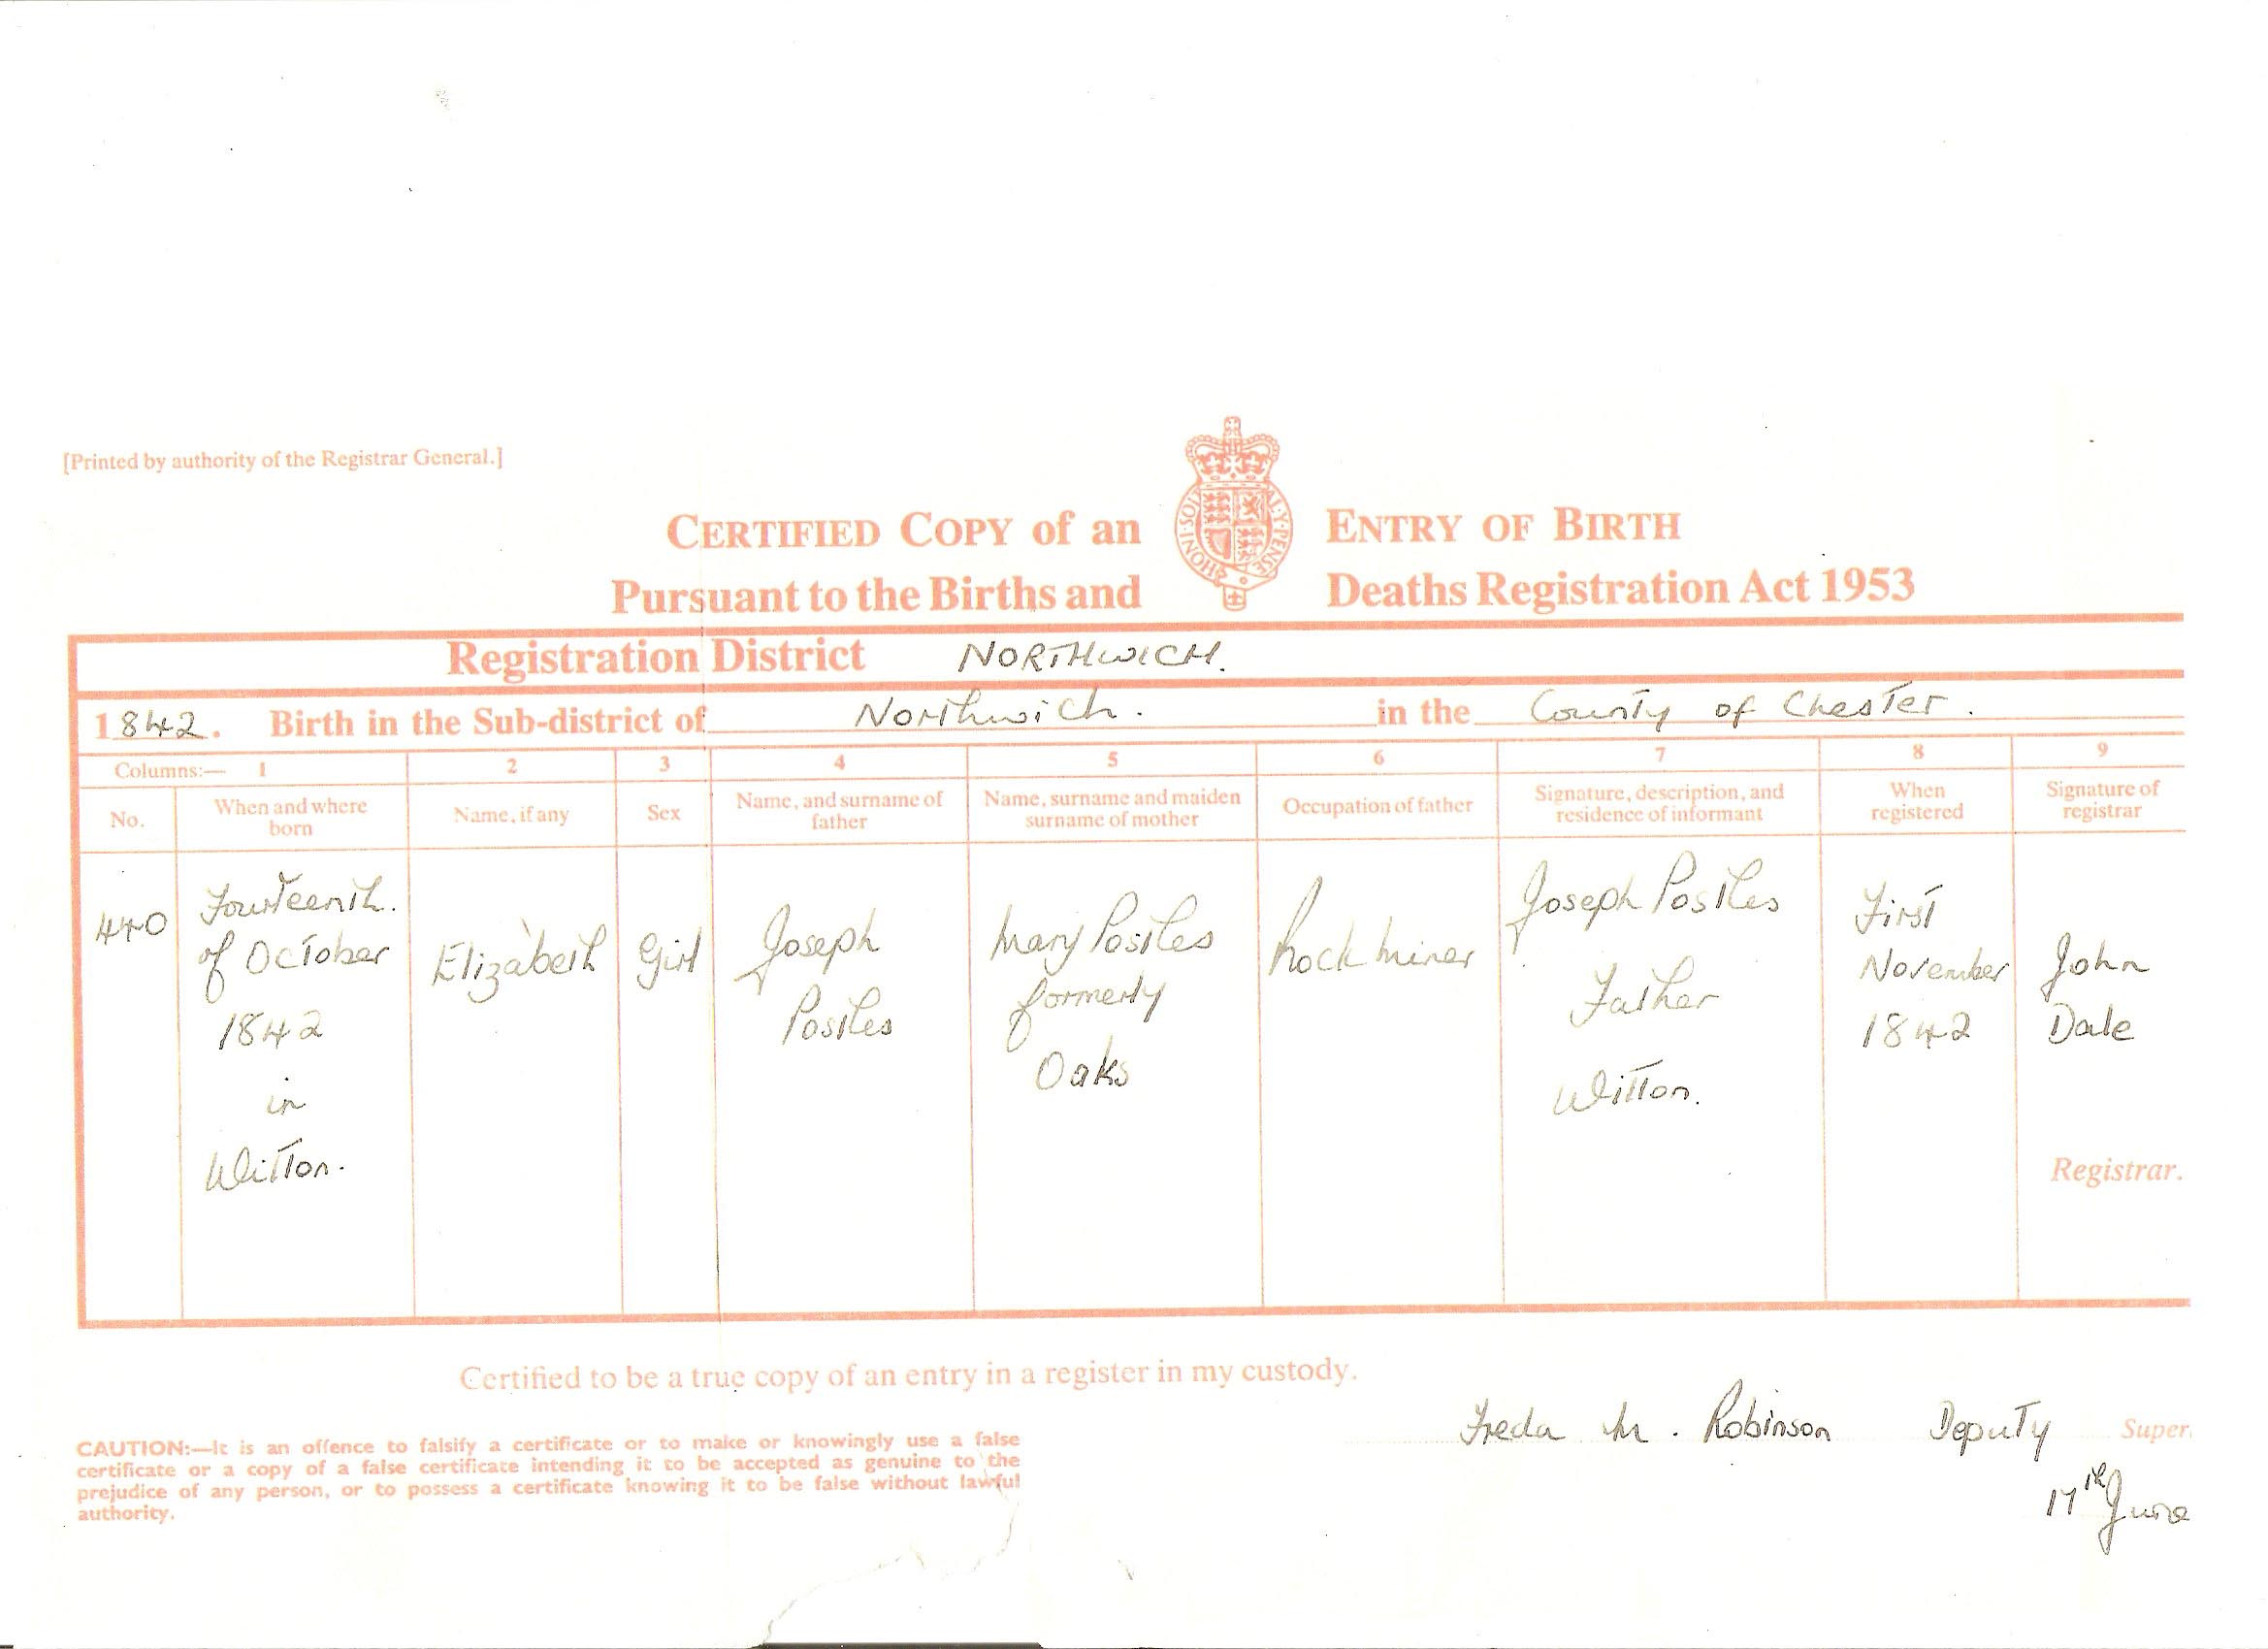 [Printed by authority of the Registrar General.]
CERTIFIED COPY of an ENTRY OF BIRTH
HONI·SOIT AL·Y·PENSE
Pursuant to the Births and Deaths Registration Act 1953
Registration District NORTHWICH.
1842. Birth in the Sub-district of Northwich. in the County of Chester.
Columns:— 1 2 3 4 5 6 7 8 9
No.
When and where
born
Name, if any
Sex
Name, and surname of
father
Name, surname and maiden
surname of mother
Occupation of father
Signature, description, and
residence of informant
When
registered
Signature of
registrar
440
Fourteenth.
of October
1842
in
Witton.
Elizabeth
Girl
Joseph
Postles
Mary Postles
formerly
Oaks
Rock miner
Joseph Postles
Father
Witton.
First
November
1842
John
Dale
Registrar.
Certified to be a true copy of an entry in a register in my custody.
Freda M. Robinson Deputy Super
17th June
CAUTION:—It is an offence to falsify a certificate or to make or knowingly use a false
certificate or a copy of a false certificate intending it to be accepted as genuine to the
prejudice of any person, or to possess a certificate knowing it to be false without lawful
authority.